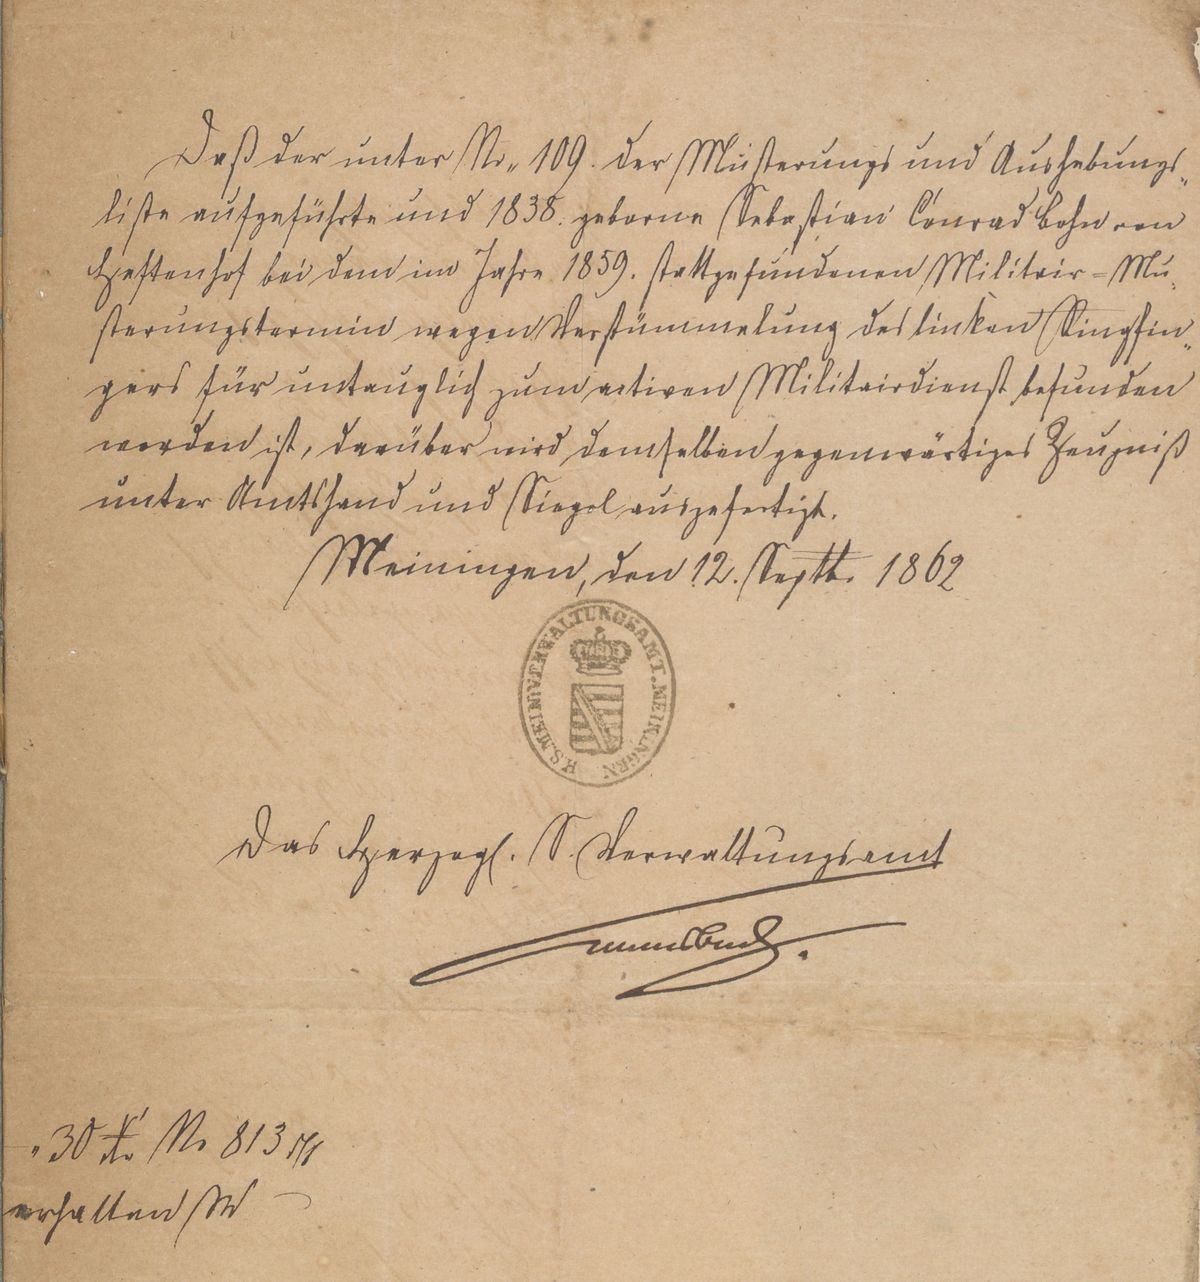 Daß der unter Nr. 109. der Musterungs und Aushebungs-
liste aufgeführte und 1838. geborne Sebastian Conrad Bohn von
Heftenhof bei dem im Jahre 1859. stattgefundenen Militair-Mu-
sterungstermin wegen Verstümmelung des linken Ringfin-
gers für untauglich zum activen Militairdienst befunden
worden ist, darüber wird demselben gegenwärtiges Zeugniß
unter Amtshand und Siegel ausgefertigt.
Meiningen, den 12. Septb. 1862
H.S.MEIN.VERWALTUNGSAMT.MEININGEN
Das Herzogl. S. Verwaltungsamt
30 Xr No 813
erhalten